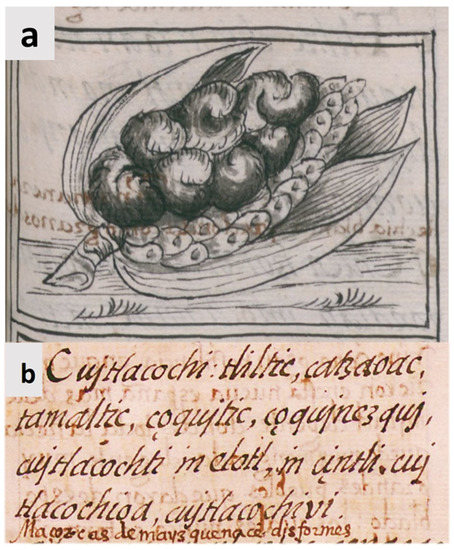 a
b
Cujtlacochi: tliltic, catzaoac,
tamaltic, çoqujtic, çoqujnezquj,
cujtlacochti in elotl, in çintli. cuj
tlacochioa, cujtlacochivi.
Maçorcas de mayz que naçe disformes